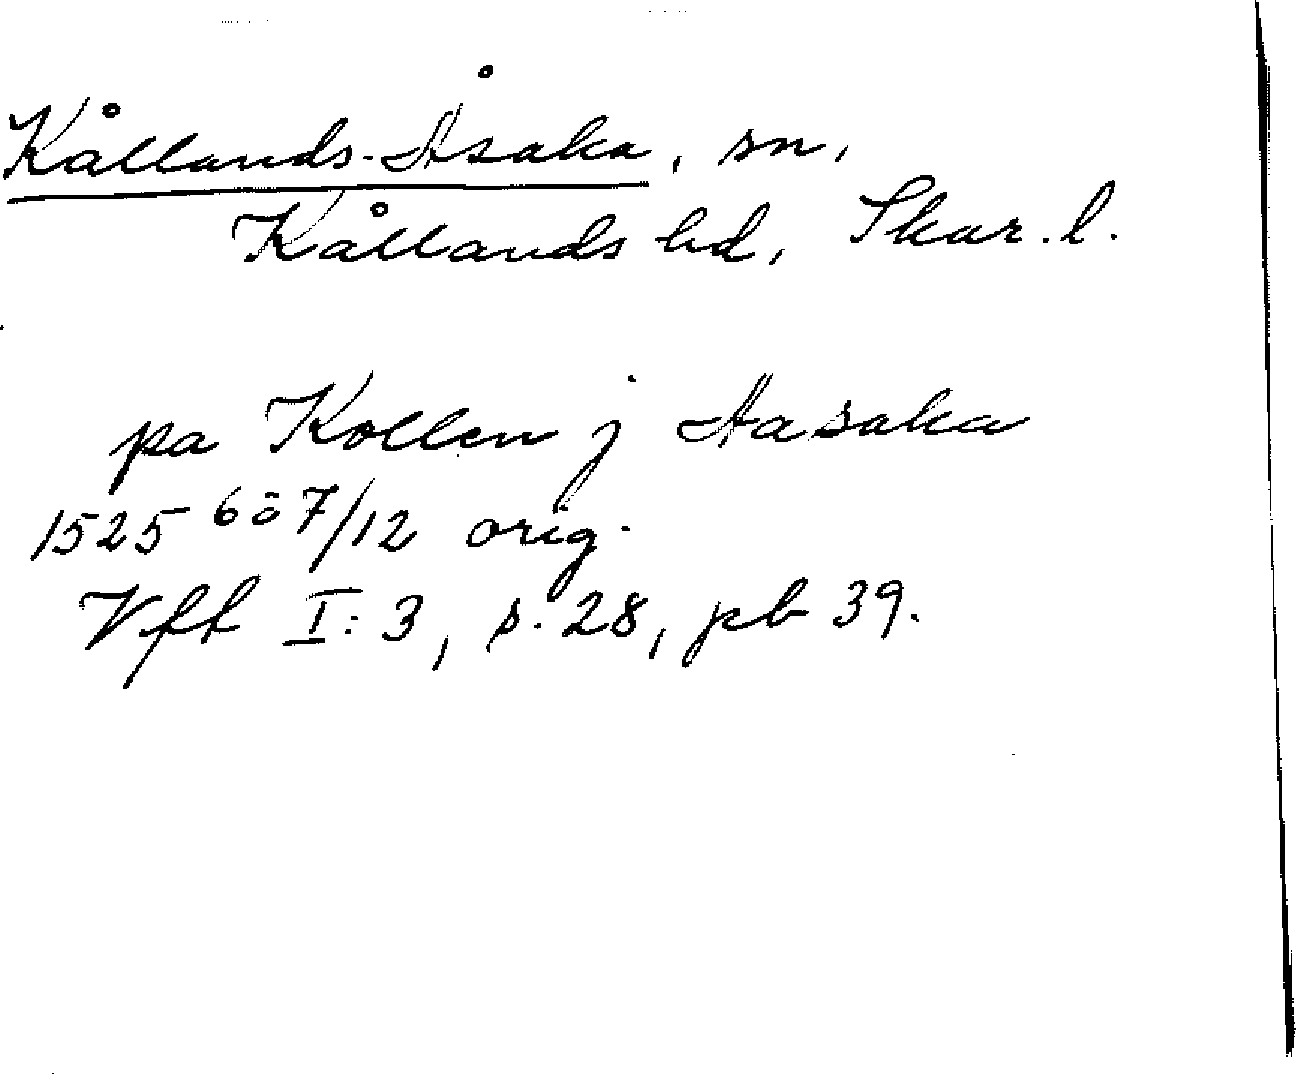 Kållands-Åsaka, sn,
Kållands hd, Skar. l.
pa Kollen j Aasaka
1525 6 ō 7/12 orig.
Vff I:3, s. 28, pb 39.